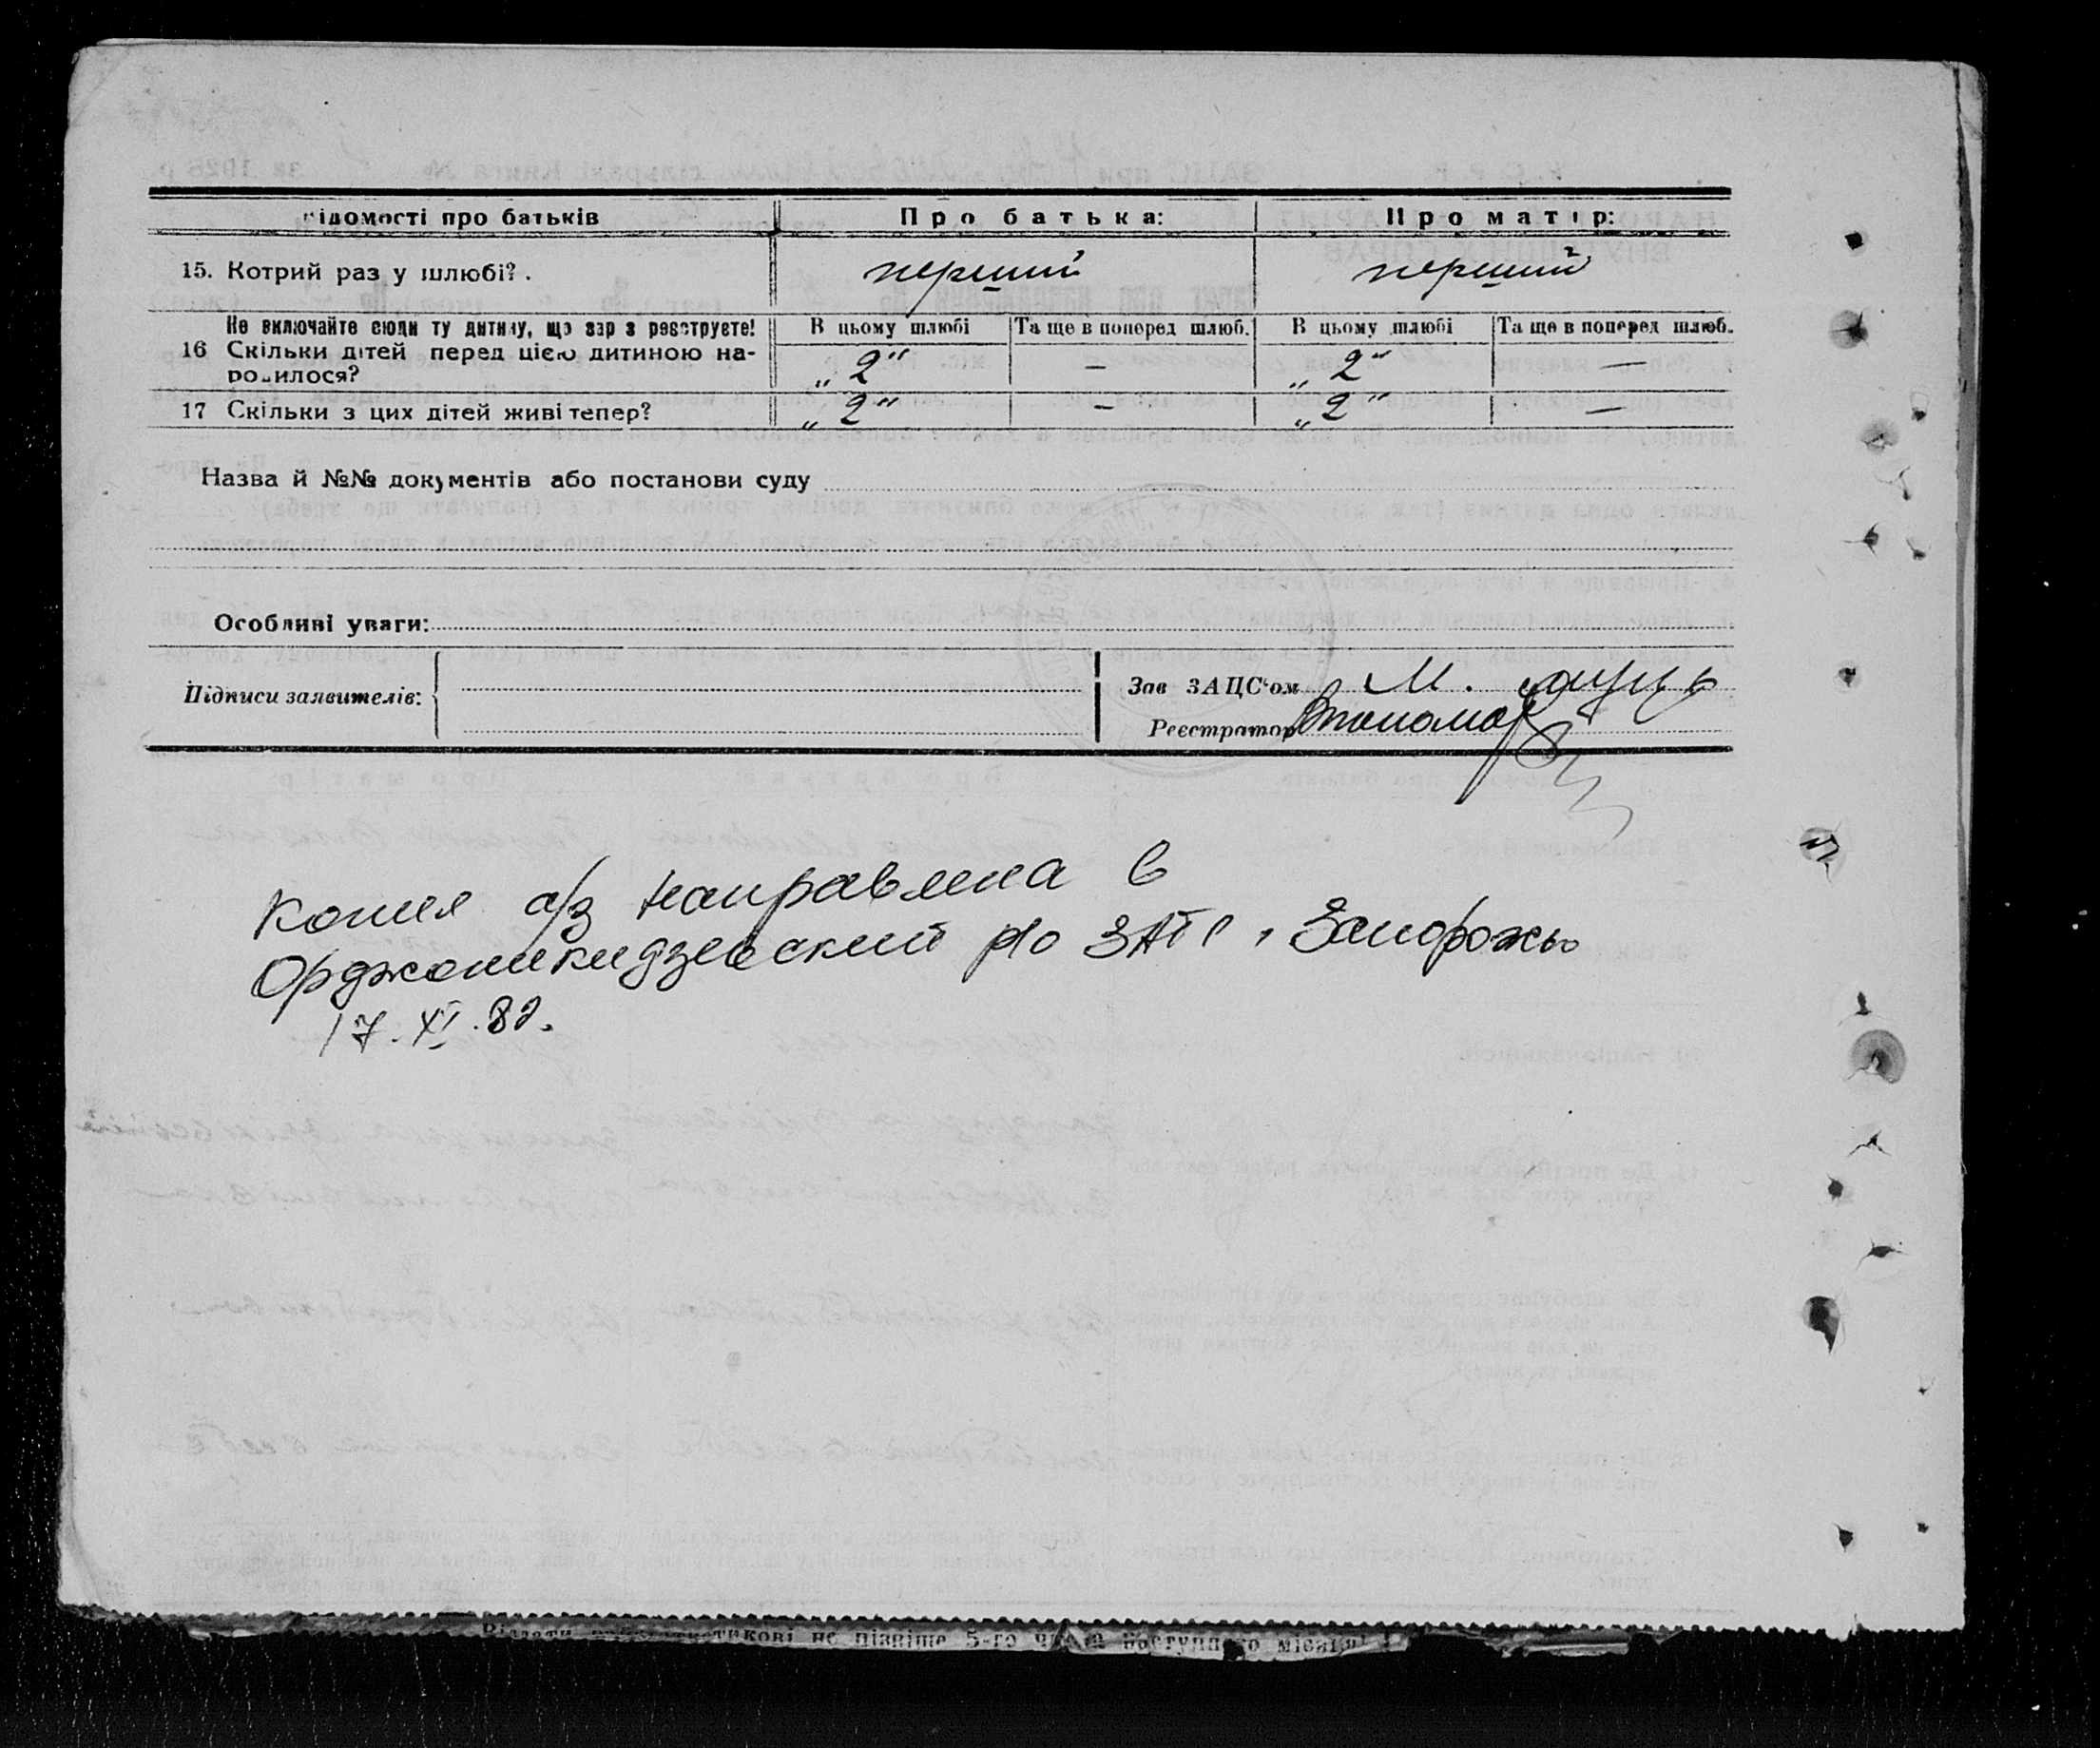 Відомості про батьків Про батька: Про матір:
15. Котрий раз у шлюбі? . перший перший
Не включайте сюди ту дитину, що зараз реєструєте! В цьому шлюбі Та ще в поперед шлюб. В цьому шлюбі Та ще в поперед шлюб.
16 Скільки дітей перед цією дитиною на-
родилося? „2“ — „2“ —
17 Скільки з цих дітей живі тепер? „2“ — „2“ —
Назва й №№ документів або постанови суду
Особливі уваги:
Підписи заявителів:
Зав ЗАЦС‘ом М.
Реєстратор
Копия а/з направлена в
Орджоникидзевский р/о ЗАГС г. Запорожье
17. XI. 82.
не пізніше 5-го числа наступного місяця!